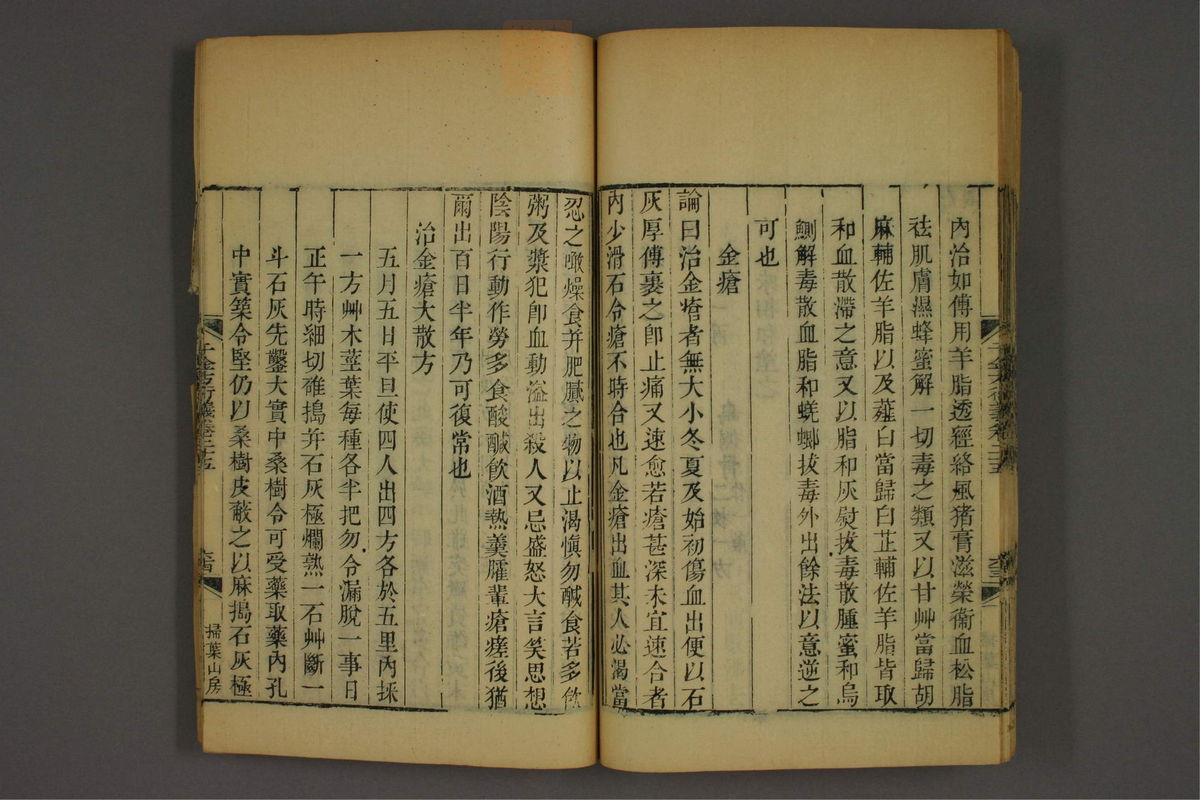 內治如傅用羊脂透經絡風猪膏滋榮衞血松脂
祛肌膚濕蜂蜜解一切毒之類又以甘艸當歸胡
麻輔佐羊脂以及薤白當歸白芷輔佐羊脂皆取
和血散滯之意又以脂和灰熨拔毒散腫蜜和烏
鰂解毒散血脂和蜣螂拔毒外出餘法以意逆之
可也
金瘡
論曰治金瘡者無大小冬夏及始初傷血出便以石
灰厚傅裹之卽止痛又速愈若瘡甚深未宜速合者
內少滑石令瘡不時合也凡金瘡出血其人必渴當
忍之噉燥食并肥膩之物以止渴愼勿鹹食若多飮
粥及漿犯卽血動溢出殺人又忌盛怒大言笑思想
陰陽行動作勞多食酸鹹飮酒熱羹臛輩瘡瘥後猶
爾出百日半年乃可復常也
治金瘡大散方
五月五日平旦使四人出四方各於五里內採
一方艸木莖葉每種各半把勿令漏脫一事日
正午時細切碓搗并石灰極爛熟一石艸斷一
斗石灰先鑿大實中桑樹令可受藥取藥內孔
中實築令堅仍以桑樹皮蔽之以麻搗石灰極
千金方衍義卷二十五
掃葉山房